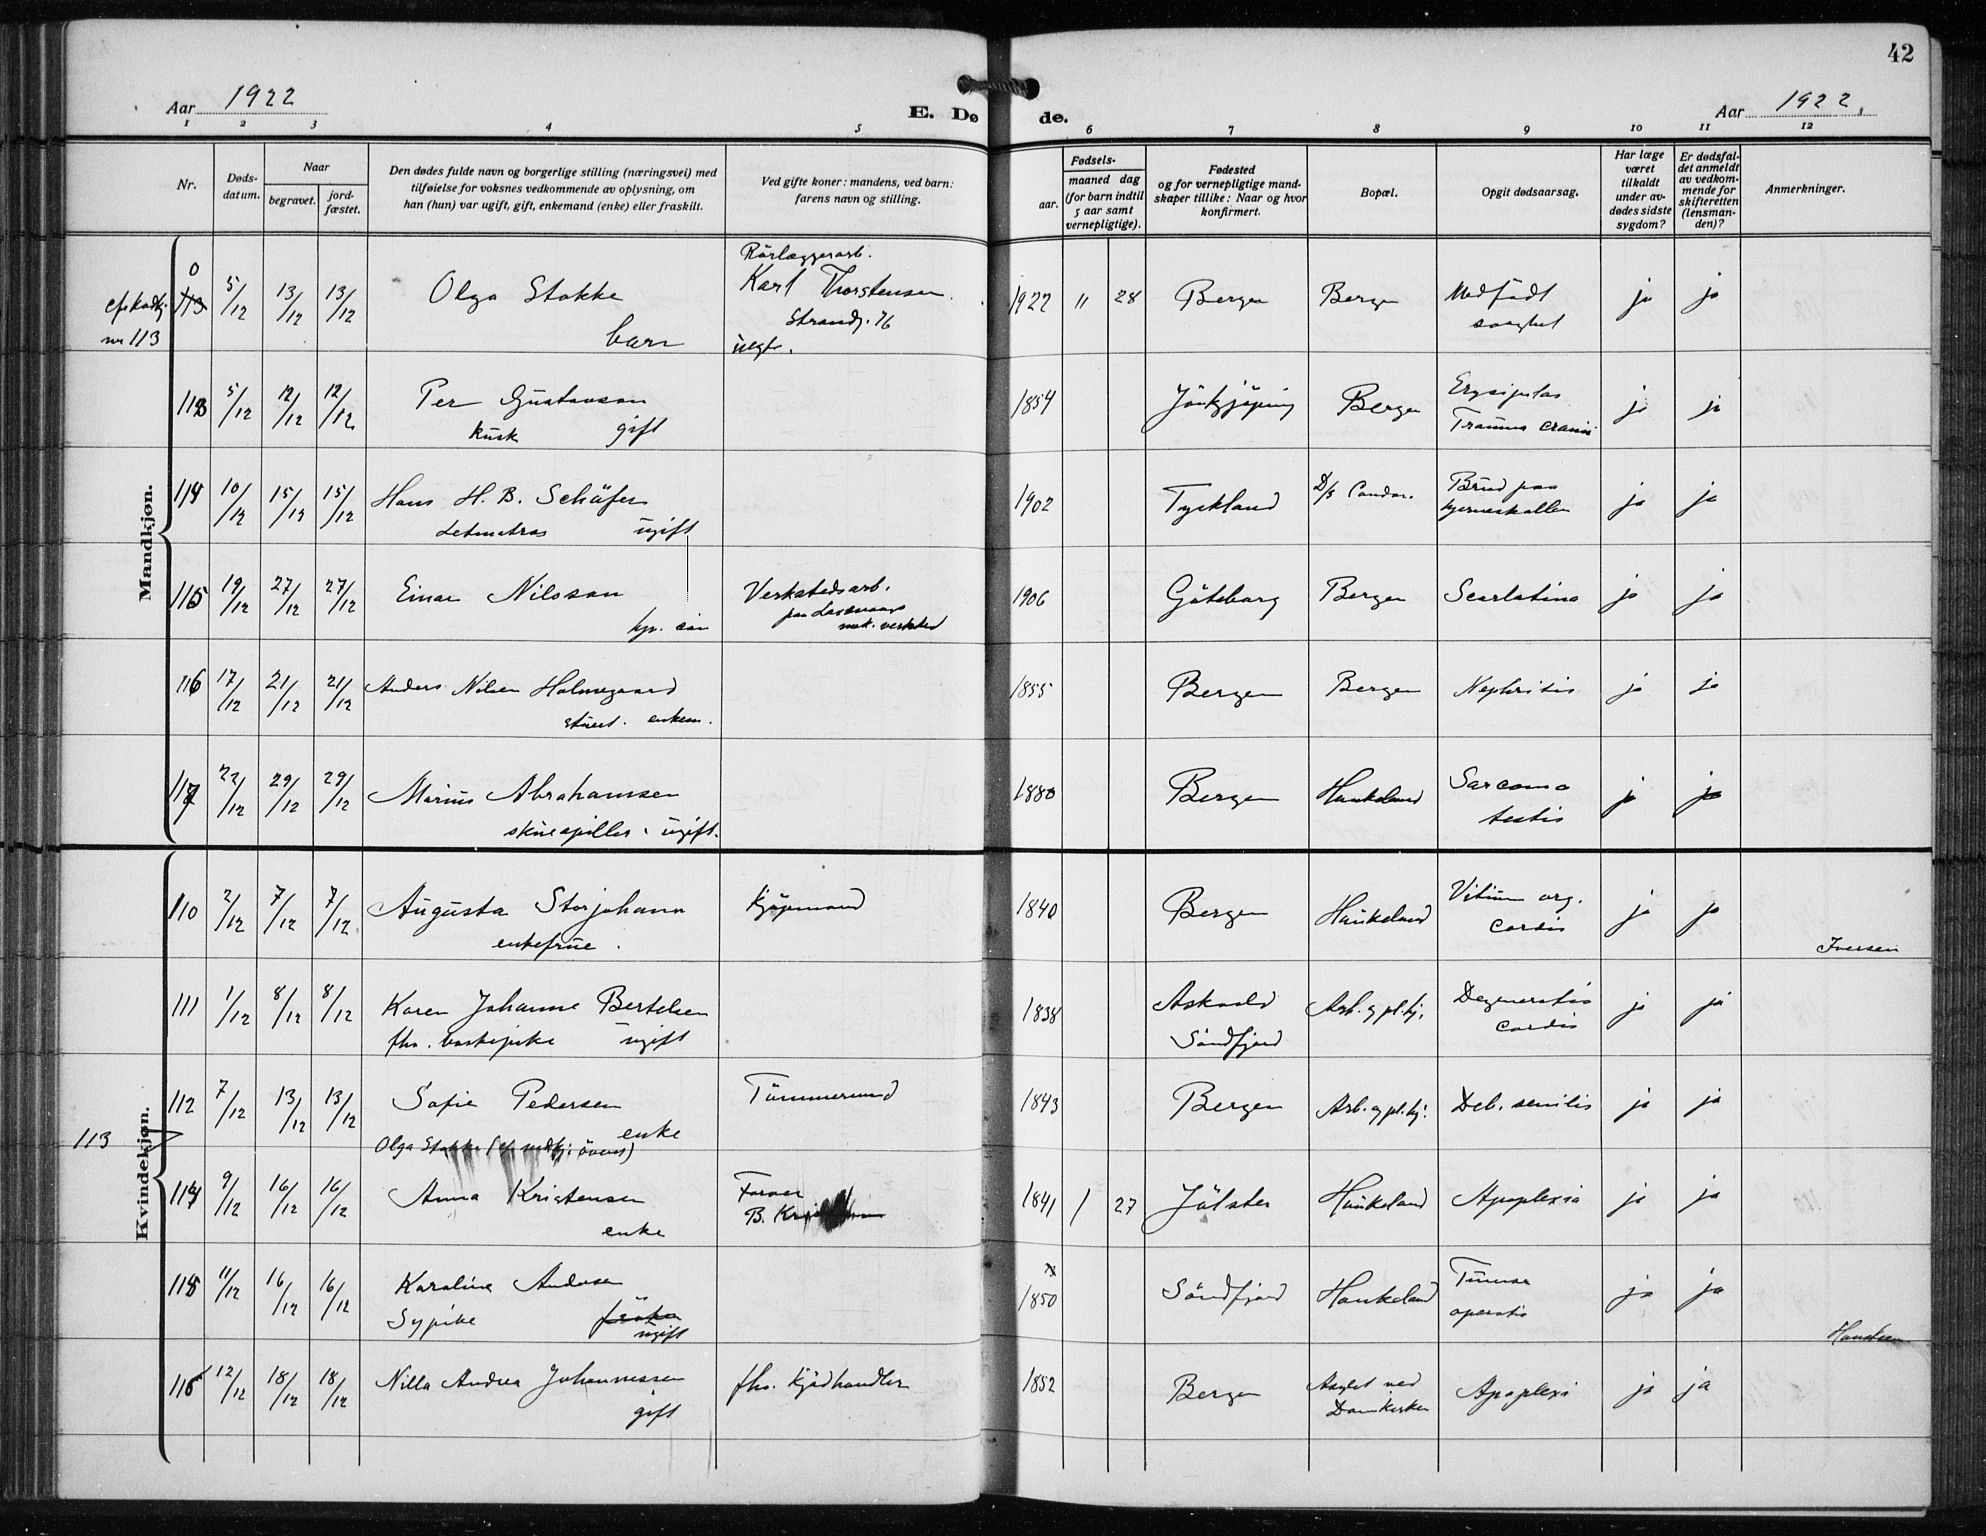 42
Aar 1922
E. Dø de.
Aar 1922
1 2 3 4 5 6 7 8 9 10 11 12
Nr.
Døds-
datum.
Naar
begravet.
jord-
fæstet.
Den dødes fulde navn og borgerlige stilling (næringsvei) med
tilføielse for voksnes vedkommende av oplysning, om
han (hun) var ugift, gift, enkemand (enke) eller fraskilt.
Ved gifte koner: mandens, ved barn:
farens navn og stilling.
Fødsels-
aar.
maaned dag
(for barn indtil
5 aar samt
vernepligtige).
Fødested
og for vernepligtige mand-
skaper tillike: Naar og hvor
konfirmert.
Bopæl.
Opgit dødsaarsag.
Har læge
været
tilkaldt
under av-
dødes sidste
sygdom?
Er dødsfal-
det anmeldt
av vedkom-
mende for
skifteretten
(lensman-
den)?
Anmerkninger.
Mandkjøn.
nr 113
0
113 5/12 13/12 13/12 Olga Stokke Karl Thorstensen 1922 11 28 Bergen Bergen Medfødt ja ja
Rörlæggerarb.
Strandg. 76
barn
113 5/12 12/12 12/12 Per Gustavson 1854 Jönkjöping Bergen Erysipelas ja ja
kusk gift Trauma cranii
114 10/12 15/12 15/12 Hans H. B. Schäfer 1902 Tyskland D/S Condor. Brud paa ja ja
Letmatros ugift hjerneskallen
115 19/12 27/12 27/12 Einar Nilsson Verkstedsarb. 1906 Göteborg Bergen Scarlatina ja ja
paa Laxevaags
mek. verksted
116 17/12 21/12 21/12 Anders Nilsen Holmegaard 1855 Bergen Bergen Nephritis ja ja
stuert. enkem.
117 22/12 29/12 29/12 Marius Abrahamsen 1880 Bergen Haukeland Sarcoma ja ja
skuespiller. ugift. testis
Kvindekjøn.
110 2/12 7/12 7/12 Augusta Storjohann Kjøpmand 1840 Bergen Haukeland Vitium org. ja ja
enkefrue. cordis
Iversen
111 1/12 8/12 8/12 Karen Johanne Bertelsen 1838 Askvold Arb. og pl.hj. Degeneratio ja ja
fhv. vaskepike ugift Söndfjord cordis
112 7/12 13/12 13/12 Sofie Pedersen Tömmermand 1843 Bergen Arb. og pl.hj. Deb. senilis ja ja
enke
113 Olga Stokke
114 9/12 16/12 16/12 Anna Kristensen Farver 1841 1 27 Jölster Haukeland Apoplexia ja ja
enke B.
115 11/12 16/12 16/12 Karoline Andersen 1850 Söndfjord Haukeland Tumor ja ja
Sypike fröken operatio
ugift
Hansteen
116 12/12 18/12 18/12 Nilla Andrea Johannessen fhv. Kjödhandler 1852 Bergen Asylet ved Apoplexi ja ja
gift Domkirken